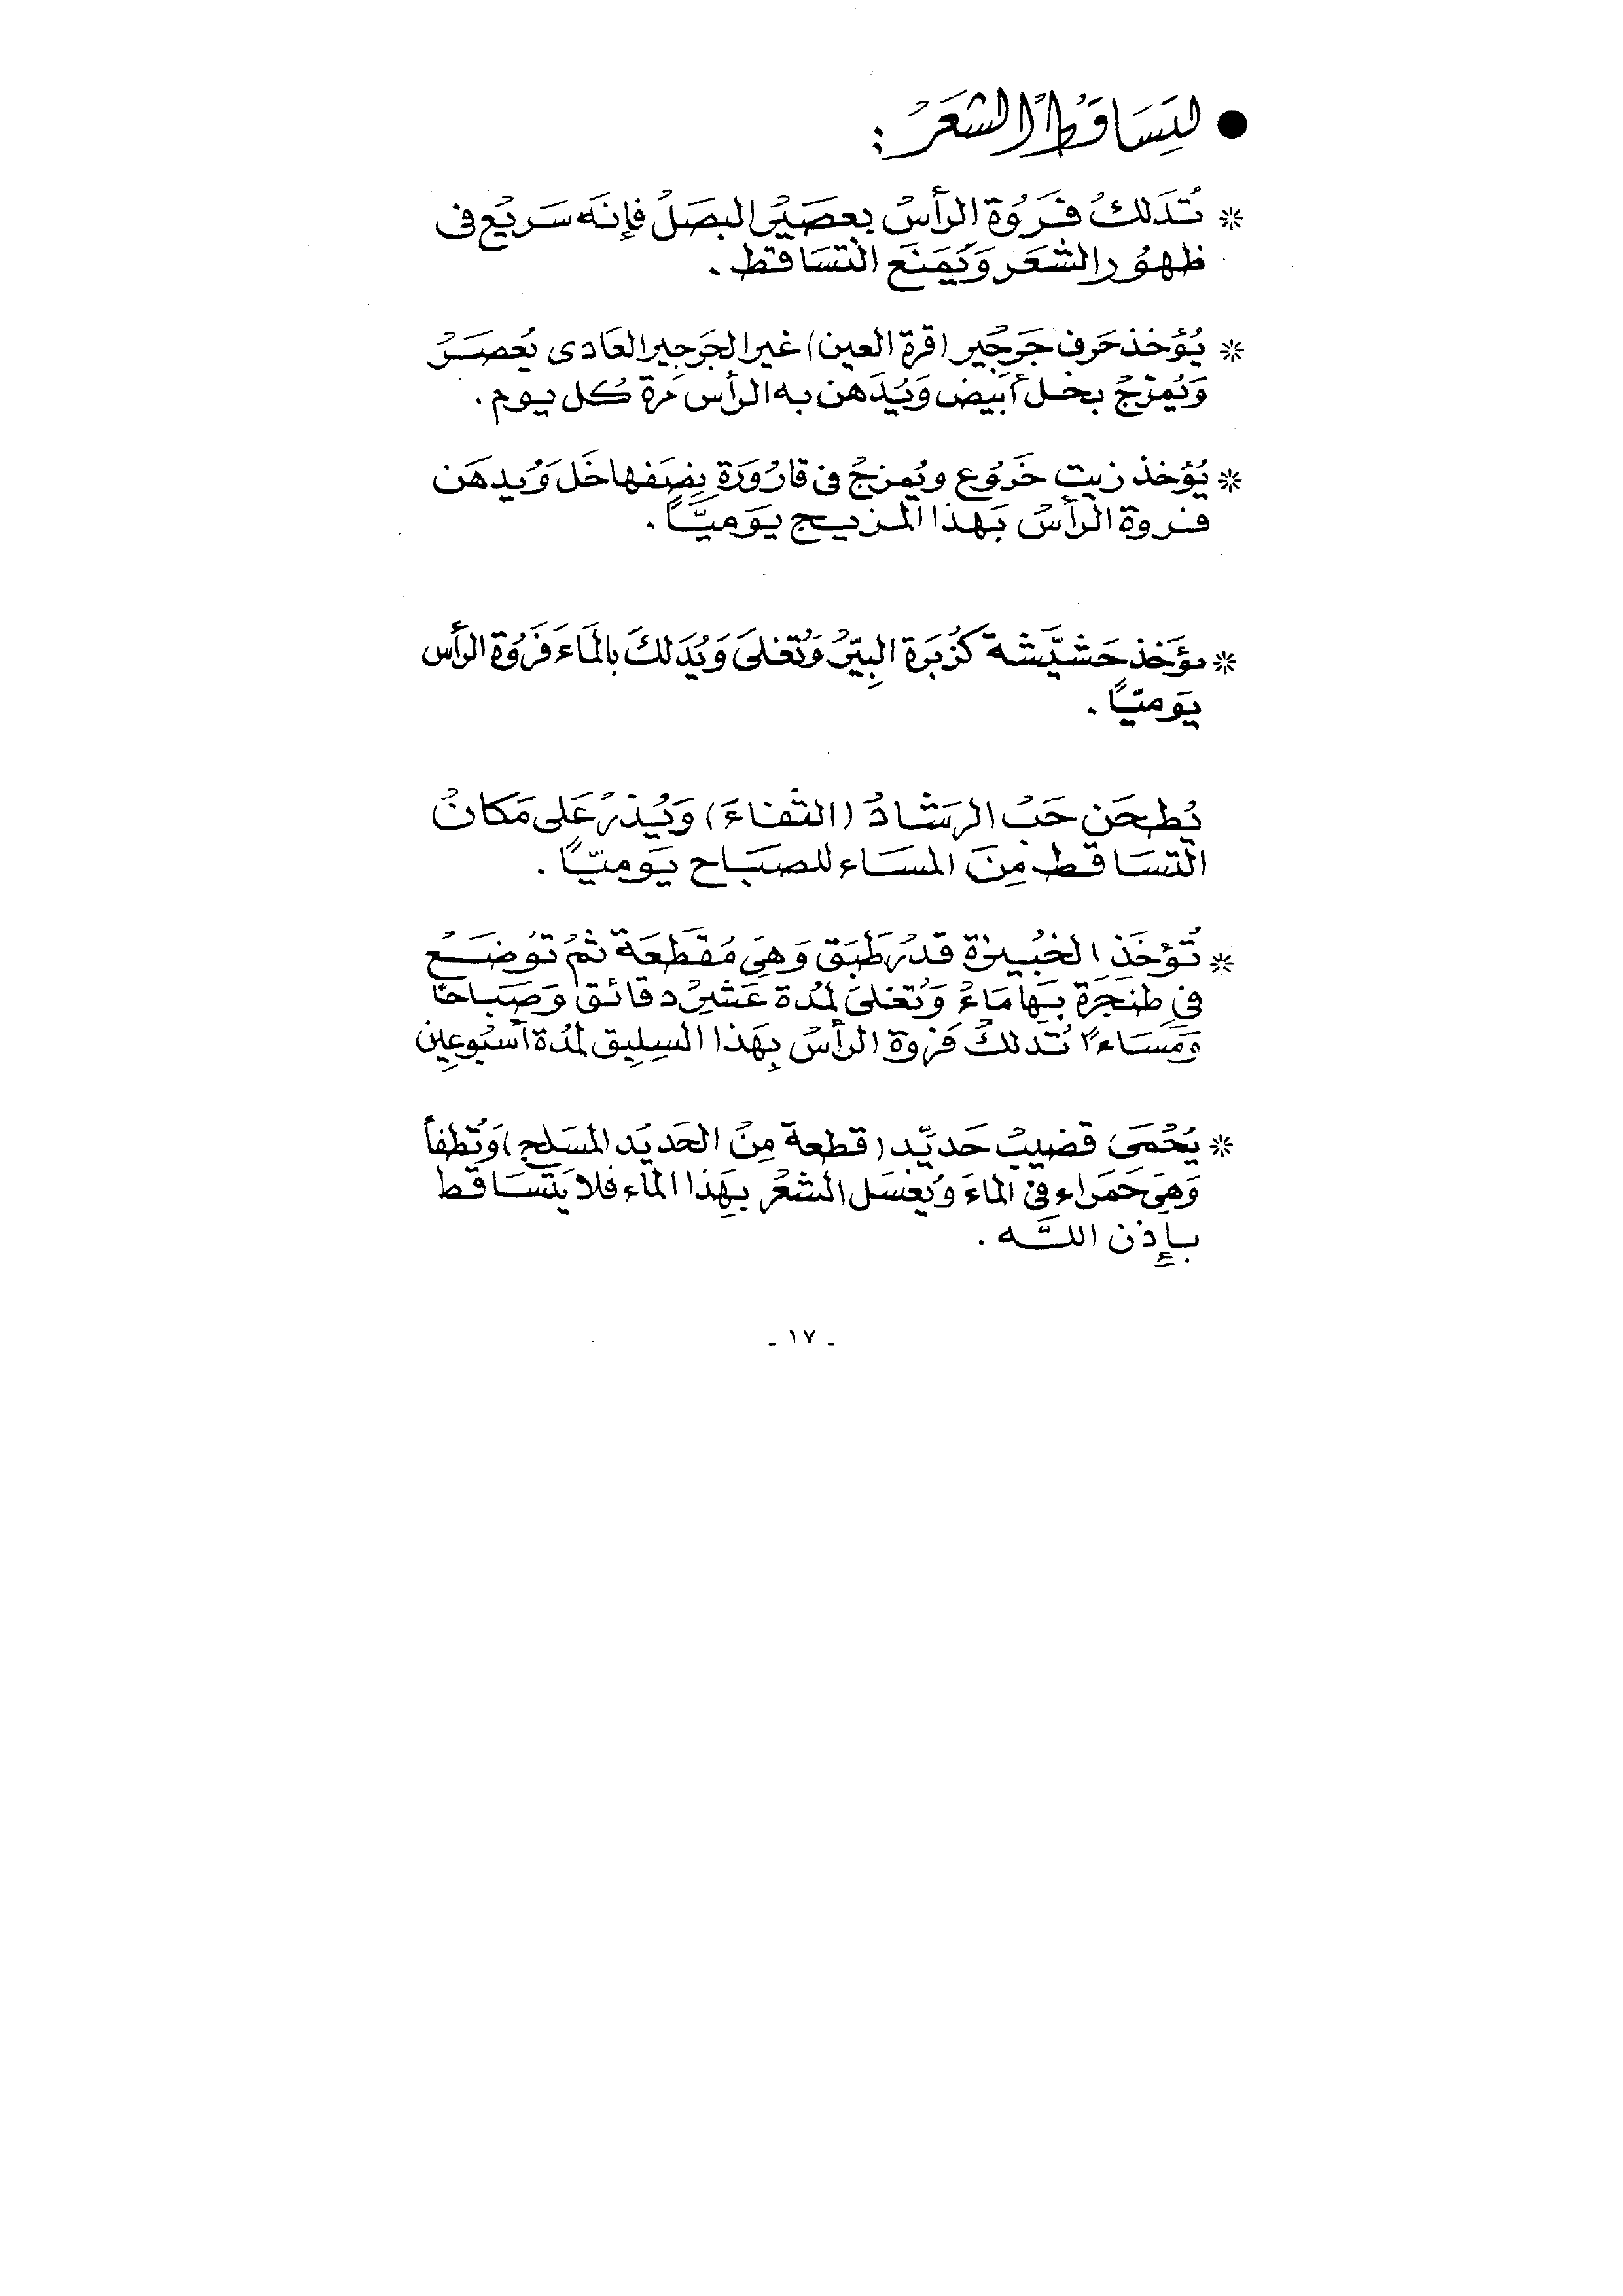 ● لتساقط الشعر :
* تُدَلك فَروُة الرأسُ بعصَيُر البصَلُ فإنَه سَريُع فى
ظهوُر الشعَر وَيَمنَع التسَاقط .
* يُؤخذ حَرف جَرجُير (قرة العين) غير الجَرجير العَادى يُعصَرُ
وَيُمزجُ بخل أبيَض وَيُدَهن به الرأس مَرة كُل يوم .
* يُؤخذ زيت خَروُع ويُمزجُ فى قارُورَة بِنصَفها خَل وَيُدهَن
فروة الرأسُ بَهذا المزيج يوَميَّاً .
* يؤَخذ حَشيَّشة كزُبَرة البِيّرُ وَتُغلىَ وَيُدَلكَ بالمَاءَ فَروُة الرأس
يوَميّاً .
يُطحَن حَبُ الرشَادُ (الثفاءَ) وَيُذرُ عَلى مَكانُ
التسَاقط مِنَ المسَاء للصبَاح يَوميّاً .
* تُؤخَذ الخبُيزة قدُر طَبَق وَهيَ مُقَطعَة ثمُ توُضَعُ
فى طنجَرَة بِهَا مَاءُ وَتُغلىَ لمُدة عَشرُ دقائق وَصَبَاحاً
وَمَسَاءً تُدَلكُ فَروة الرأسُ بِهَذا السِليق لمُدة أسبُوعين
* يُحْمَىَ قضيبُ حَديّد (قطعة مِنُ الحَديَد المسَلح) وَتُطفأ
وَهيَ حَمَراء في الماءَ وَيُغسَل الشعُر بِهَذا الماء فلا يَتَسَاقط
بإذن اللَّه .
- ١٧ -